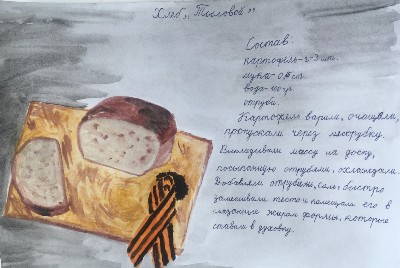 Хлеб „Тыловой"
Состав:
картофель - 2-3 шт.
мука -
вода -
отруби.
Картофель варим, очищаем,
пропускали через мясорубку.
Выкладывали массу на доску,
посыпанную отрубями, охлаждали.
Добавляли отруби, соль, быстро
замешивали тесто и помещали его в
смазанные жиром формы, которые
ставили в духовку.